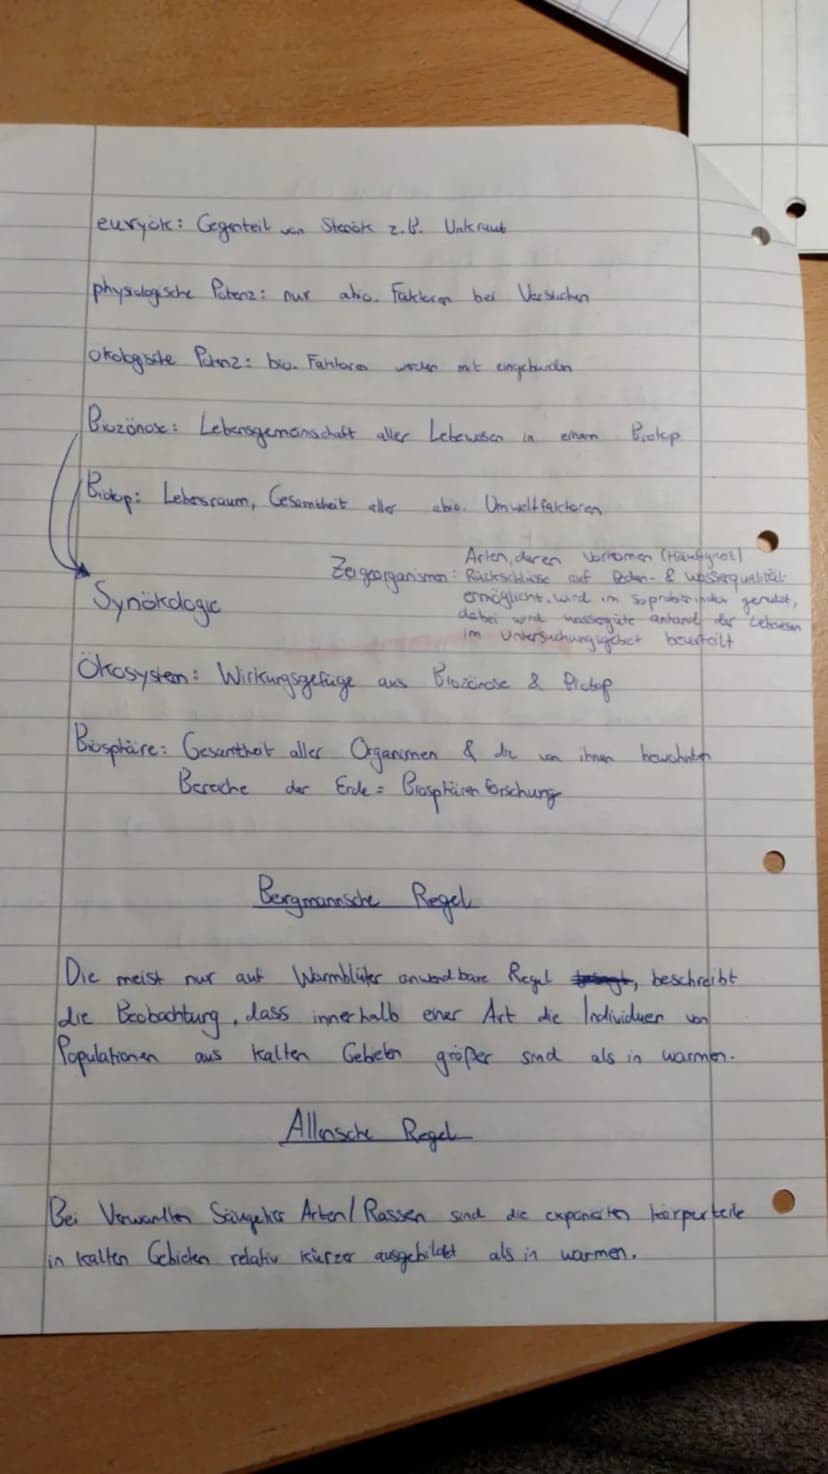 euryök: Gegenteil von Stenök z.B. Unkraut
physiologische Potenz: nur abio. Faktoren bei Versuchen
ökologische Potenz: bio. Faktoren werden mit eingebunden
Biozönose: Lebensgemeinschaft aller Lebewesen in einem Biotop
Biotop: Lebensraum, Gesamtheit aller abio. Umweltfaktoren
Synökologie
Zeigeorganismen: Arten, deren Vorkomen (Häufigkeit)
Rückschlüsse auf Boden- & wasserqualität
ermöglicht. wird im genutzt,
dabei wird wassergüte anhand der Lebewesen
im Untersuchungsgebiet beurteilt
Ökosystem: Wirkungsgefüge aus Biozönose & Biotop
Biosphäre: Gesamtheit aller Organismen & die von ihnen bewohnten
Bereiche der Erde = Biosphären forschung
Bergmannsche Regel
Die meist nur auf Warmblüter anwendbare Regel, beschreibt
die Beobachtung, dass innerhalb einer Art die Individuen von
Populationen aus kalten Gebieten größer sind als in warmen.
Allensche Regel
Bei Verwandten Säugetier Arten/Rassen sind die exponierten körperteile
in kalten Gebieten relativ kürzer ausgebildet als in warmen.